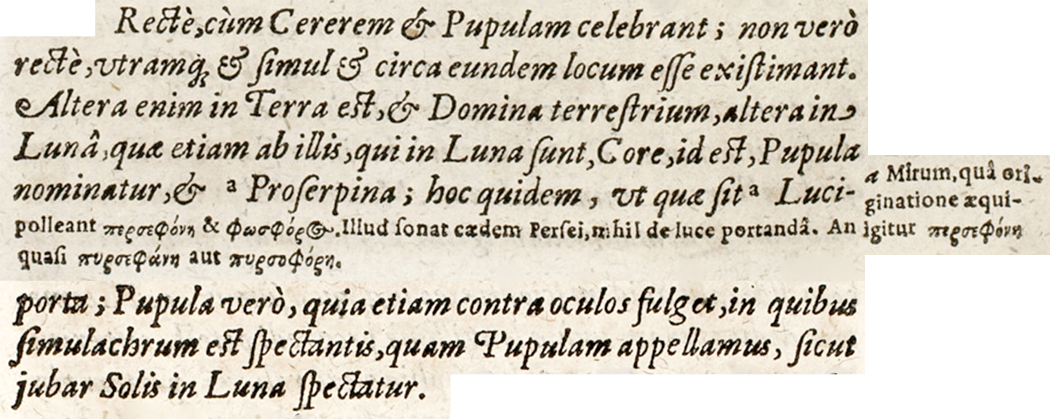 Rectè, cùm Cererem & Pupulam celebrant; non verò
rectè, vtramq́ₓ & simul & circa eundem locum esse existimant.
Altera enim in Terra est, & Domina terrestrium, altera in
Lunâ, quæ etiam ab illis, qui in Luna sunt, Core, id est, Pupula
nominatur, & ª Proserpina; hoc quidem, vt quæ sit ª Luci-
a Mirum, quâ ori-
ginatione æqui-
polleant περσεφόνη & φωσφόρ⊕. Illud sonat cædem Persei, nihil de luce portandâ. An igitur περσεφόνη
quasi πυρσεφάνη aut πυρσοφόρη.
porta; Pupula verò, quia etiam contra oculos fulget, in quibus
simulachrum est spectantis, quam Pupulam appellamus, sicut
jubar Solis in Luna spectatur.